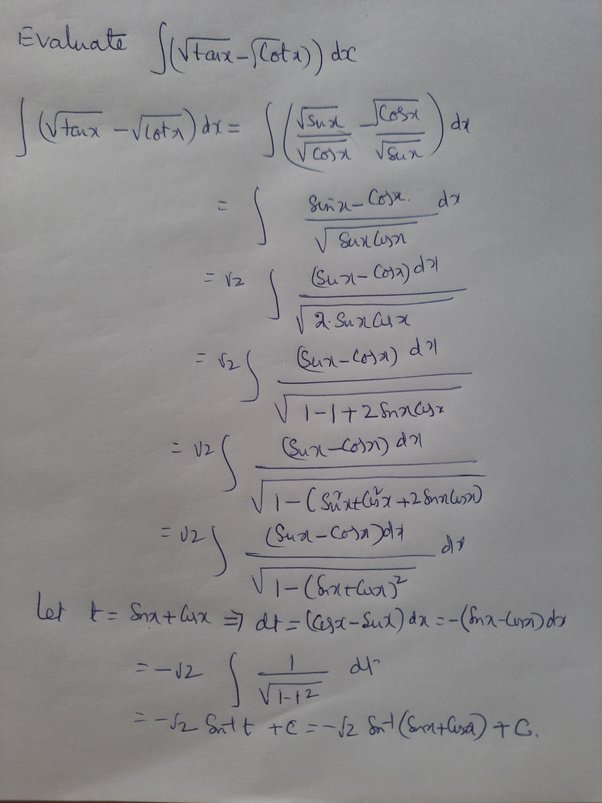 Evaluate ∫(√tanx - √Cotx)) dx
∫(√tanx - √Cotx) dx = ∫(√sinx/√Cosx - √Cosx/√Sinx) dx
= ∫ Sinx - Cosx. / √SinxCosx dx
= √2 ∫ (Sinx - Cosx) dx / √2·SinxCosx
= √2 ∫ (Sinx - Cosx) dx / √1-1+2SinxCosx
= √2 ∫ (Sinx - Cosx) dx / √1-(Sin²x+Cos²x+2SinxCosx)
= √2 ∫ (Sinx - Cosx)dx / √1-(Sinx+Cosx)² dx
Let t = Sinx+Cosx ⇒ dt = (Cosx - Sinx) dx = -(Sinx-Cosx)dx
= -√2 ∫ 1/√1-t² dt
= -√2 Sin⁻¹ t + C = -√2 Sin⁻¹(Sinx+Cosx) + C.